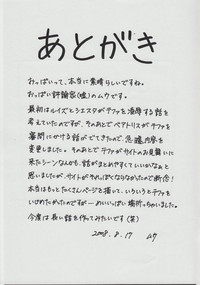 あとがき
おっぱいって、本当に素晴らしいですね。
おっぱい評論家(嘘)のムウです。
最初はルイズとシエスタがテファを凌辱する話を
考えていたのですが、そのあとでベアトリスがテファを
審問にかける話がでてきたので、急遽内容を
変更しました。そのあとでテファがサイトのお見舞いに
来たシーンなんかも、話がまとめやすくていいかなぁと
思いましたが、サイトがそれっぽくならなかったので断念!
本当はもっとたくさんページを描いて、いろいろとテファを
いじめたかったのですが―めいいっぱい場所っちゃいました。
今度は長い話を作ってみたいです(笑)
2008.8.17 ムウ